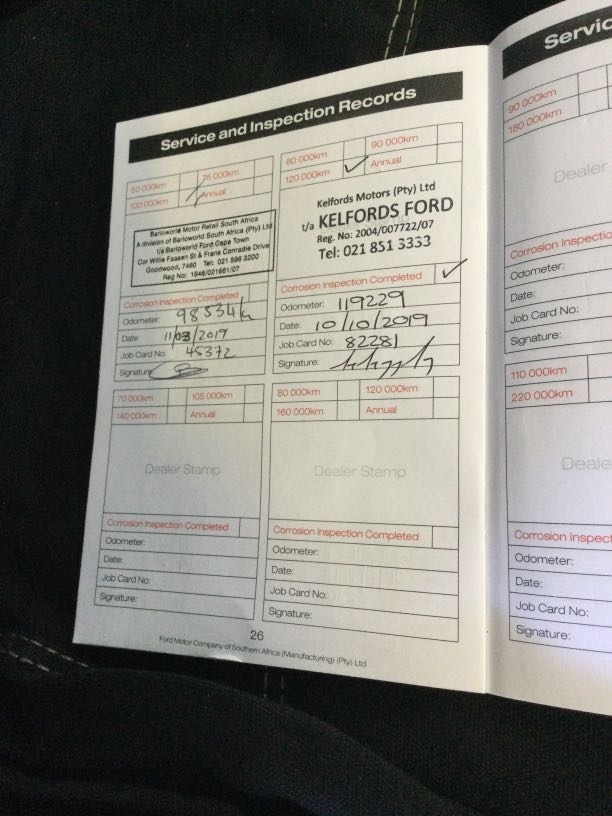 Service and Inspection Records
50 000km 75 000km
100 000km Annual
Barloworld Motor Retail South Africa
A division of Barloworld South Africa (Pty) Ltd
t/a Barloworld Ford Cape Town
Cor Willie Faasen St & Frans Conradie Drive
Goodwood, 7460 Tel: 021 596 3200
Reg No: 1946/021661/07
Corrosion Inspection Completed
Odometer: 98534
Date: 11/03/2019
Job Card No: 45372
Signature:
60 000km 90 000km
120 000km ✓ Annual
Kelfords Motors (Pty) Ltd
t/a KELFORDS FORD
Reg. No: 2004/007722/07
Tel: 021 851 3333
Corrosion Inspection Completed ✓
Odometer: 119229
Date: 10/10/2019
Job Card No: 82281
Signature:
70 000km 105 000km
140 000km Annual
Dealer Stamp
Corrosion Inspection Completed
Odometer:
Date:
Job Card No:
Signature:
80 000km 120 000km
160 000km Annual
Dealer Stamp
Corrosion Inspection Completed
Odometer:
Date:
Job Card No:
Signature:
26
Ford Motor Company of Southern Africa (Manufacturing) (Pty) Ltd
Servic
90 000km
180 000km
Dealer
Corrosion Inspectio
Odometer:
Date:
Job Card No:
Signature:
110 000km
220 000km
Deale
Corrosion Inspect
Odometer:
Date:
Job Card No:
Signature: